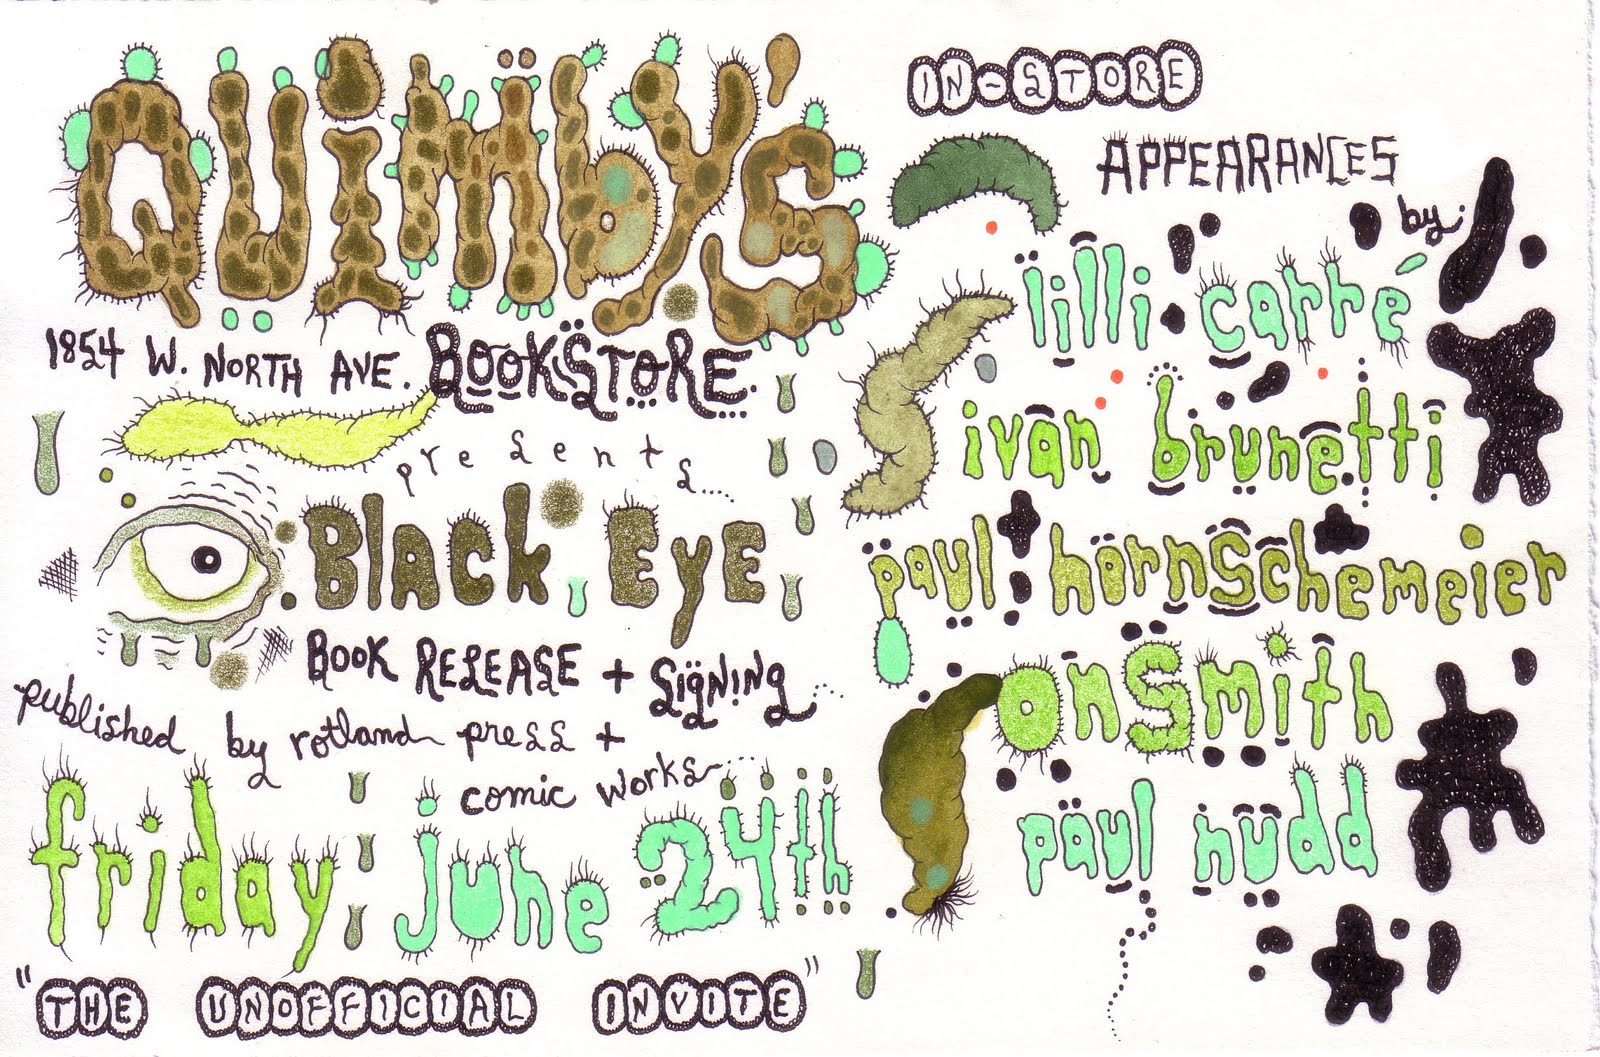 QUIMBY'S
1854 W. NORTH AVE. BOOKSTORE.
presents....
Black Eye
BOOK RELEASE + SIGNING...
published by rotland press +
comic works....
friday june 24th
"THE UNOFFICIAL INVITE"
IN-STORE
APPEARANCES
by:
lilli carré
ivan brunetti
paul hornschemeier
onsmith
paul nudd